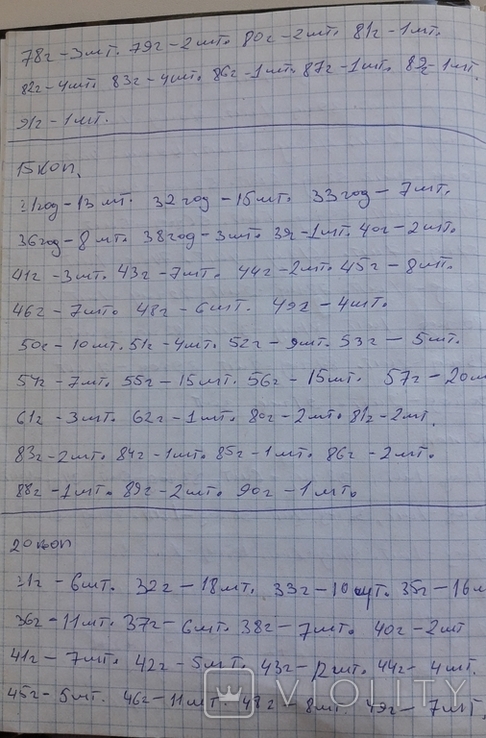 78г - 3шт. 79г - 2шт. 80г - 2шт. 81г - 1шт.
82г - 4шт. 83г - 4шт. 86г - 1шт. 87г - 1шт. 89г - 1шт.
91г - 1шт.
15 коп.
31год - 13 шт. 32 год - 15шт. 33 год - 7шт.
36год - 8 шт. 38 год - 3шт. 39 - 1шт. 40г - 2шт.
41г - 3шт. 43г - 7шт. 44г - 2шт. 45г - 8шт.
46г - 7шт. 48г - 6шт. 49г - 4шт.
50г - 10шт. 51г - 4шт. 52г - 9шт. 53г - 5шт.
54г - 7шт. 55г - 15шт. 56г - 15шт. 57г - 20ш
61г - 3шт. 62г - 1шт. 80г - 2шт. 81г - 2шт.
83г - 2шт. 84г - 1шт. 85г - 1шт. 86г - 2шт.
88г - 1шт. 89г - 2шт. 90г - 1шт.
20 коп
31г - 6шт. 32г - 18шт. 33г - 10 шт. 35г - 16ш
36г - 11шт. 37г - 6шт. 38г - 7шт. 40г - 2шт
41г - 7шт. 42г - 5шт. 43г - 12шт. 44г - 4шт.
45г - 5шт. 46г - 11шт. 48г - 8шт. 49г - 7шт.
VIOLITY